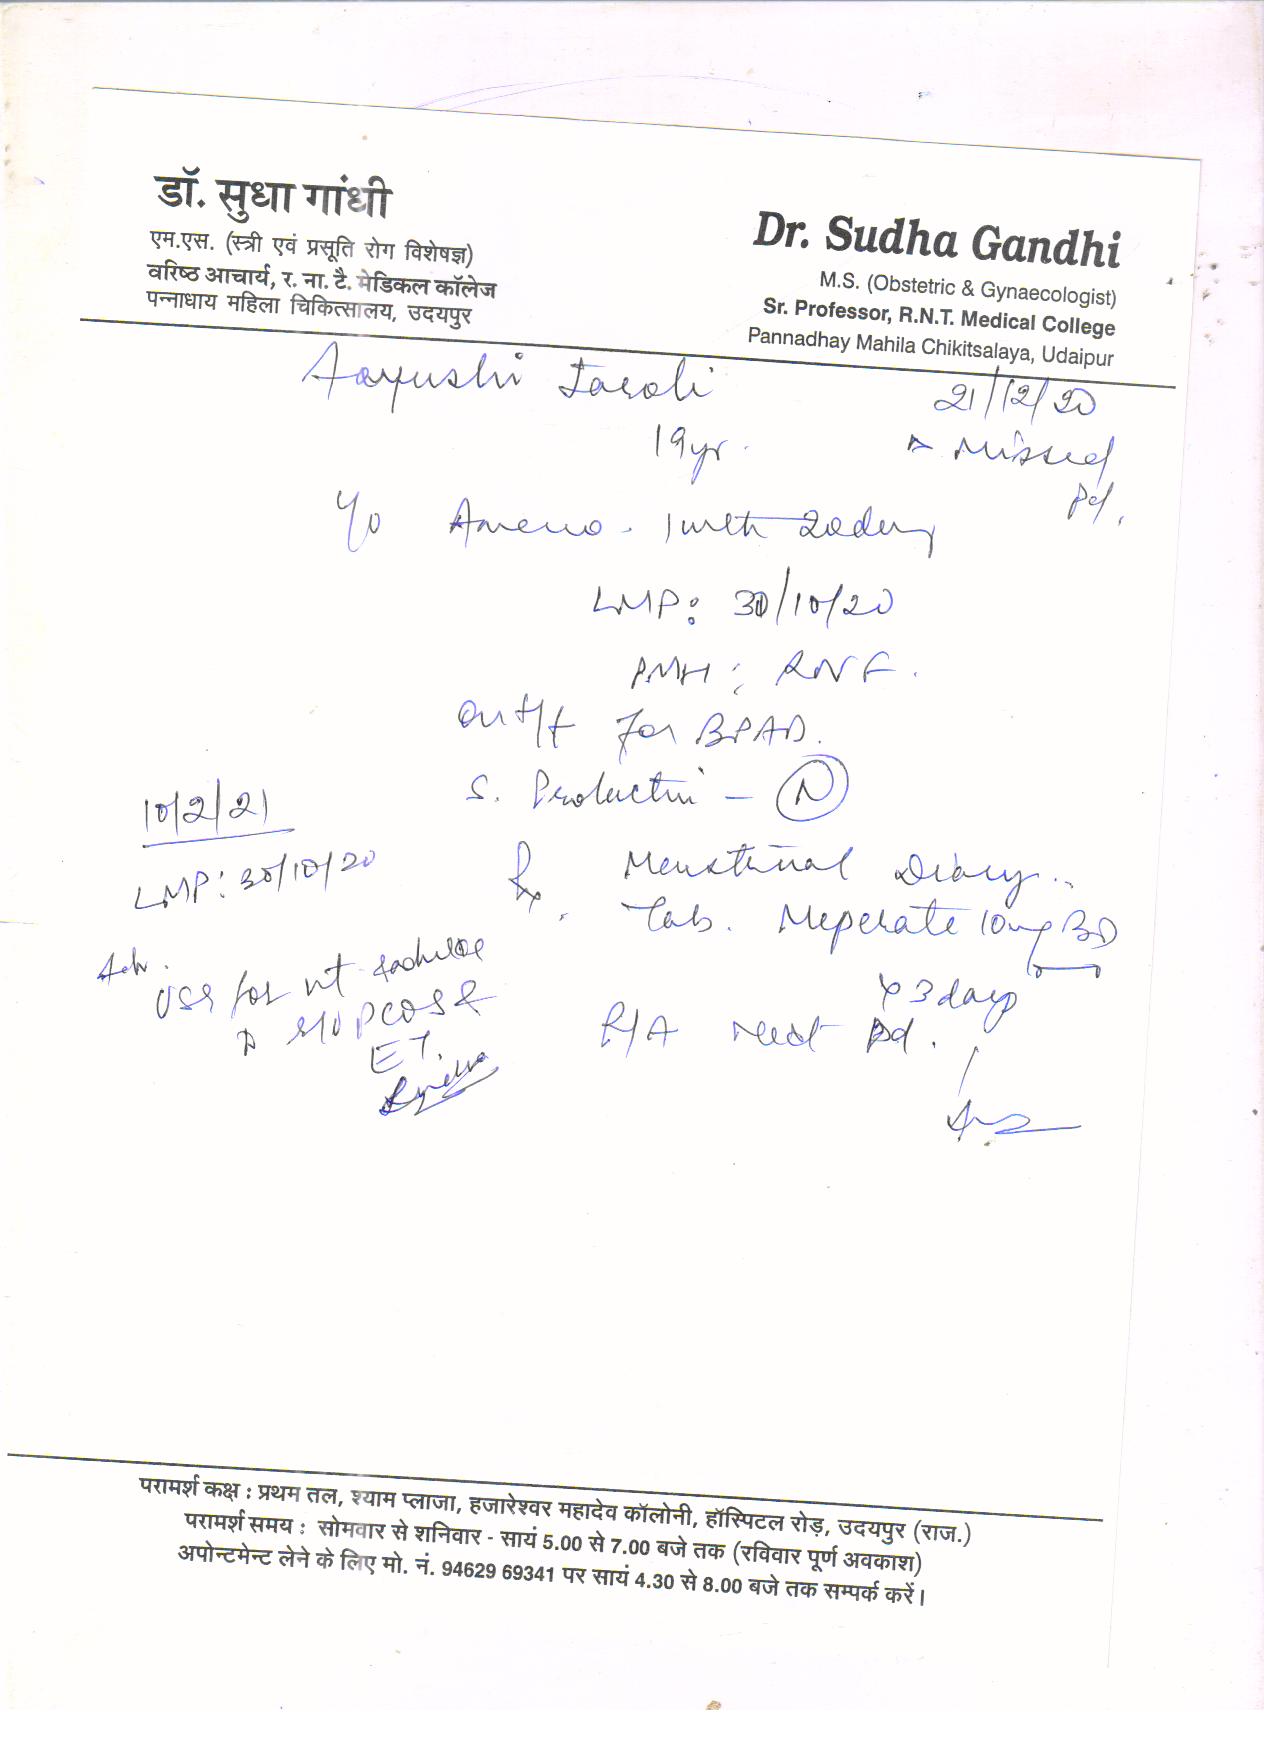 डॉ. सुधा गांधी
एम.एस. (स्त्री एवं प्रसूति रोग विशेषज्ञ)
वरिष्ठ आचार्य, र. ना. टै. मेडिकल कॉलेज
पन्नाधाय महिला चिकित्सालय, उदयपुर
Dr. Sudha Gandhi
M.S. (Obstetric & Gynaecologist)
Sr. Professor, R.N.T. Medical College
Pannadhay Mahila Chikitsalaya, Udaipur
Aayushi Jaroli
21/12/20
19yr.
Missed
Pd.
Y/o Ameno - 1 mth 20 day
LMP: 30/10/20
PMH: RNF.
on t/t for BPAD.
S. Prolactin - N
Rx Menstrual Diary..
Tab. Meperate 10mg BD
x 3 days
R/A Next Pd.
10/2/21
LMP: 30/10/20
Adv.
USG for
R/O PCOS &
ET.
परामर्श कक्ष : प्रथम तल, श्याम प्लाजा, हजारेश्वर महादेव कॉलोनी, हॉस्पिटल रोड़, उदयपुर (राज.)
परामर्श समय : सोमवार से शनिवार - सायं 5.00 से 7.00 बजे तक (रविवार पूर्ण अवकाश)
अपोन्टमेन्ट लेने के लिए मो. नं. 94629 69341 पर सायं 4.30 से 8.00 बजे तक सम्पर्क करें।